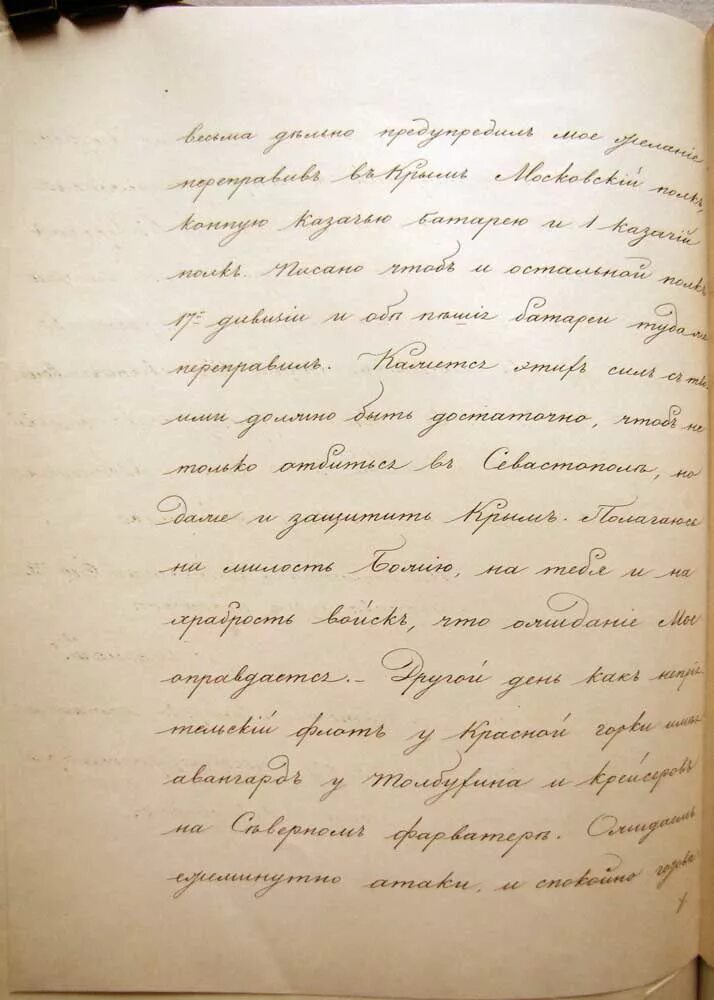 весьма дѣльно предупредилъ мое желаніе
переправивъ въ Крымъ Московскій полкъ,
конную казачью батарею и 1 казачій
полкъ. Писано чтобъ и остальной полкъ
17й дивизіи и обѣ пѣшіе батареи туда же
переправилъ. Кажется этихъ силъ съ тѣ-
ими должно быть достаточно, чтобъ не
только отбиться въ Севастополѣ, но
даже и защитить Крымъ. Полагаюсь
на милость Божію, на тебя и на
храбрость войскъ, что ожиданіе Мое
оправдается. – Другой день какъ непрія-
тельскій флотъ у Красной горки имѣя
авангардъ у Толбухина и крейсеровъ
на Сѣверномъ фарватерѣ. Ожидаемъ
ежеминутно атаки, и спокойно готовы